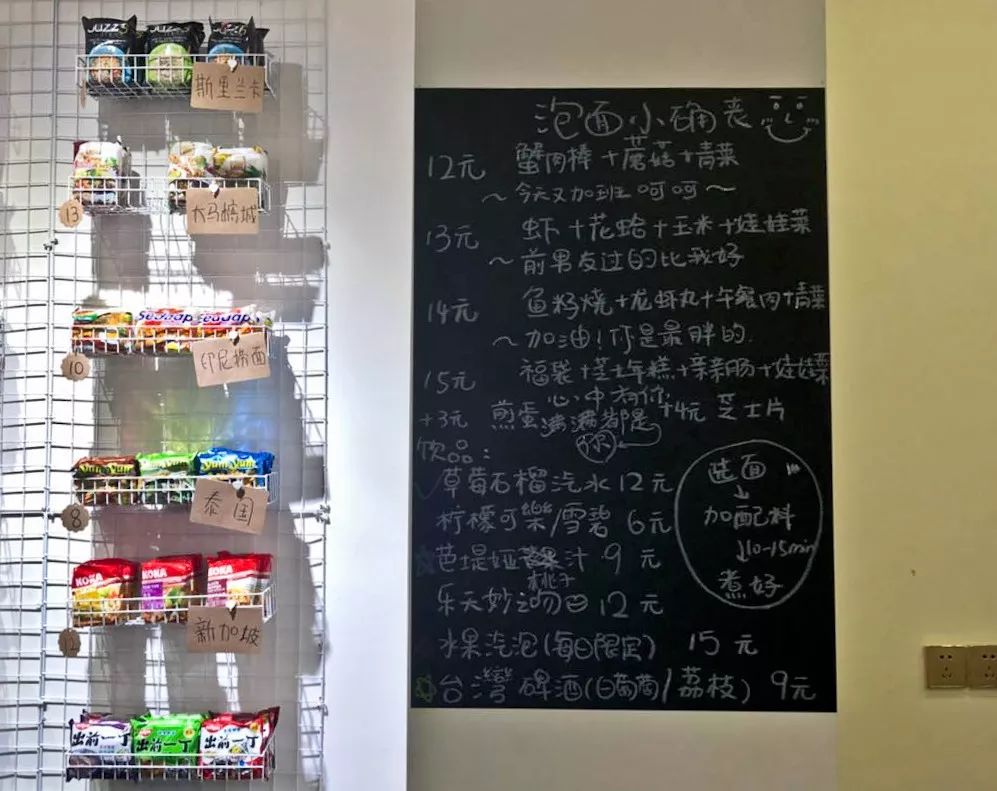 JUZZ'S
斯里兰卡
13
大马槟城
Sedaap Sedaap
10
印尼捞面
YumYum YumYum
8
泰国
KOKA KOKA KOKA
12
新加坡
出前一丁 出前一丁 出前一丁
泡面小确丧
12元 蟹肉棒+蘑菇+青菜
～今天又加班 呵呵～
13元 虾+花蛤+玉米+娃娃菜
～前男友过的比我好
14元 鱼籽烧+龙虾丸+午餐肉+青菜
～加油!你是最胖的.
15元 福袋+芝士年糕+亲亲肠+娃娃菜
心中有你
+3元 煎蛋 满满都是 +4元 芝士片
你
饮品:
草莓石榴汽水 12元
柠檬可樂/雪碧 6元
芭堤娅 果汁 9元
桃子
乐天妙之吻 12元
水果汽泡(每日限定) 15元
台灣啤酒(白葡萄/荔枝) 9元
选面
↓
加配料
↓10-15min
煮好